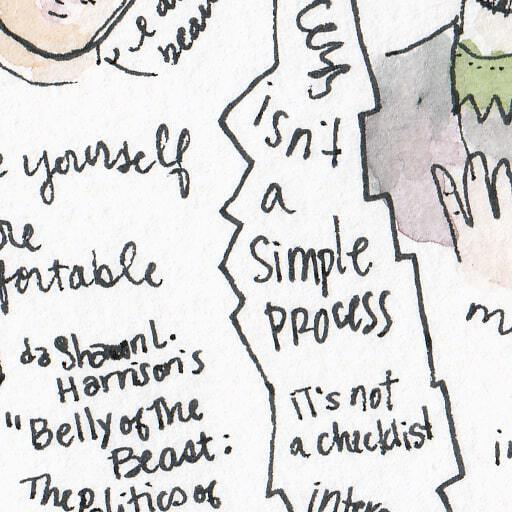 beau
yourself
fortable
da Shaun L.
Harrison's
"Belly of The
Beast:
The Politics of
isn't
a
Simple
process
it's not
a checklist